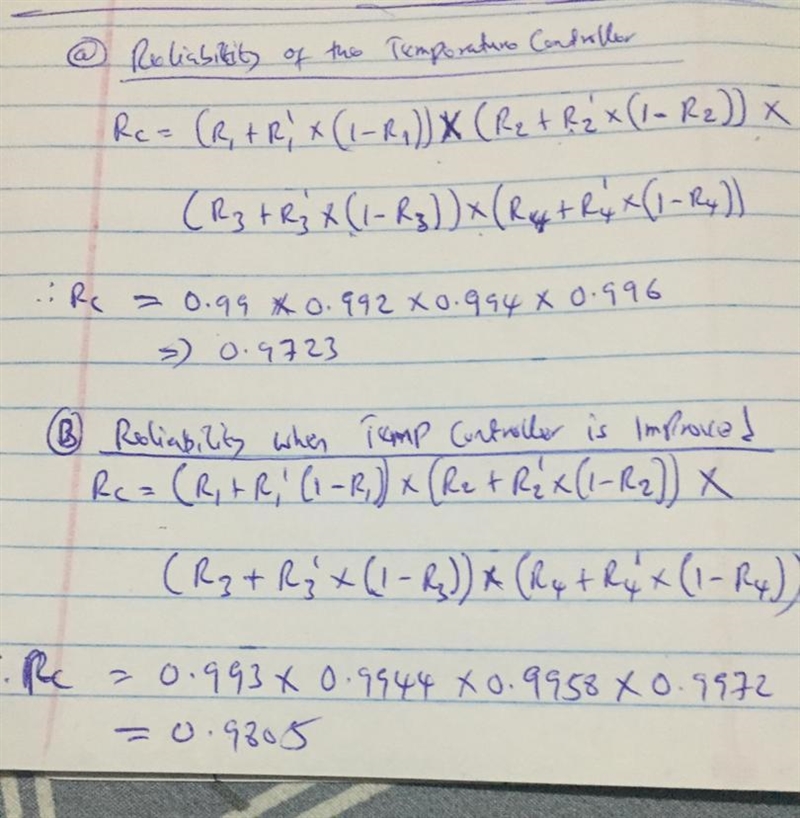 (a) Reliability of the Temperature Controller
Rc = (R₁ + R₁' × (1-R₁)) × (R₂ + R₂' × (1-R₂)) ×
(R₃ + R₃' × (1-R₃)) × (R₄ + R₄' × (1-R₄))
∴ Rc = 0.99 × 0.992 × 0.994 × 0.996
=> 0.9723
(B) Reliability when Temp Controller is Improved
Rc = (R₁ + R₁' (1-R₁)) × (R₂ + R₂' × (1-R₂)) ×
(R₃ + R₃' × (1-R₃)) × (R₄ + R₄' × (1-R₄))
∴ Rc = 0.993 × 0.9944 × 0.9958 × 0.9972
= 0.9805